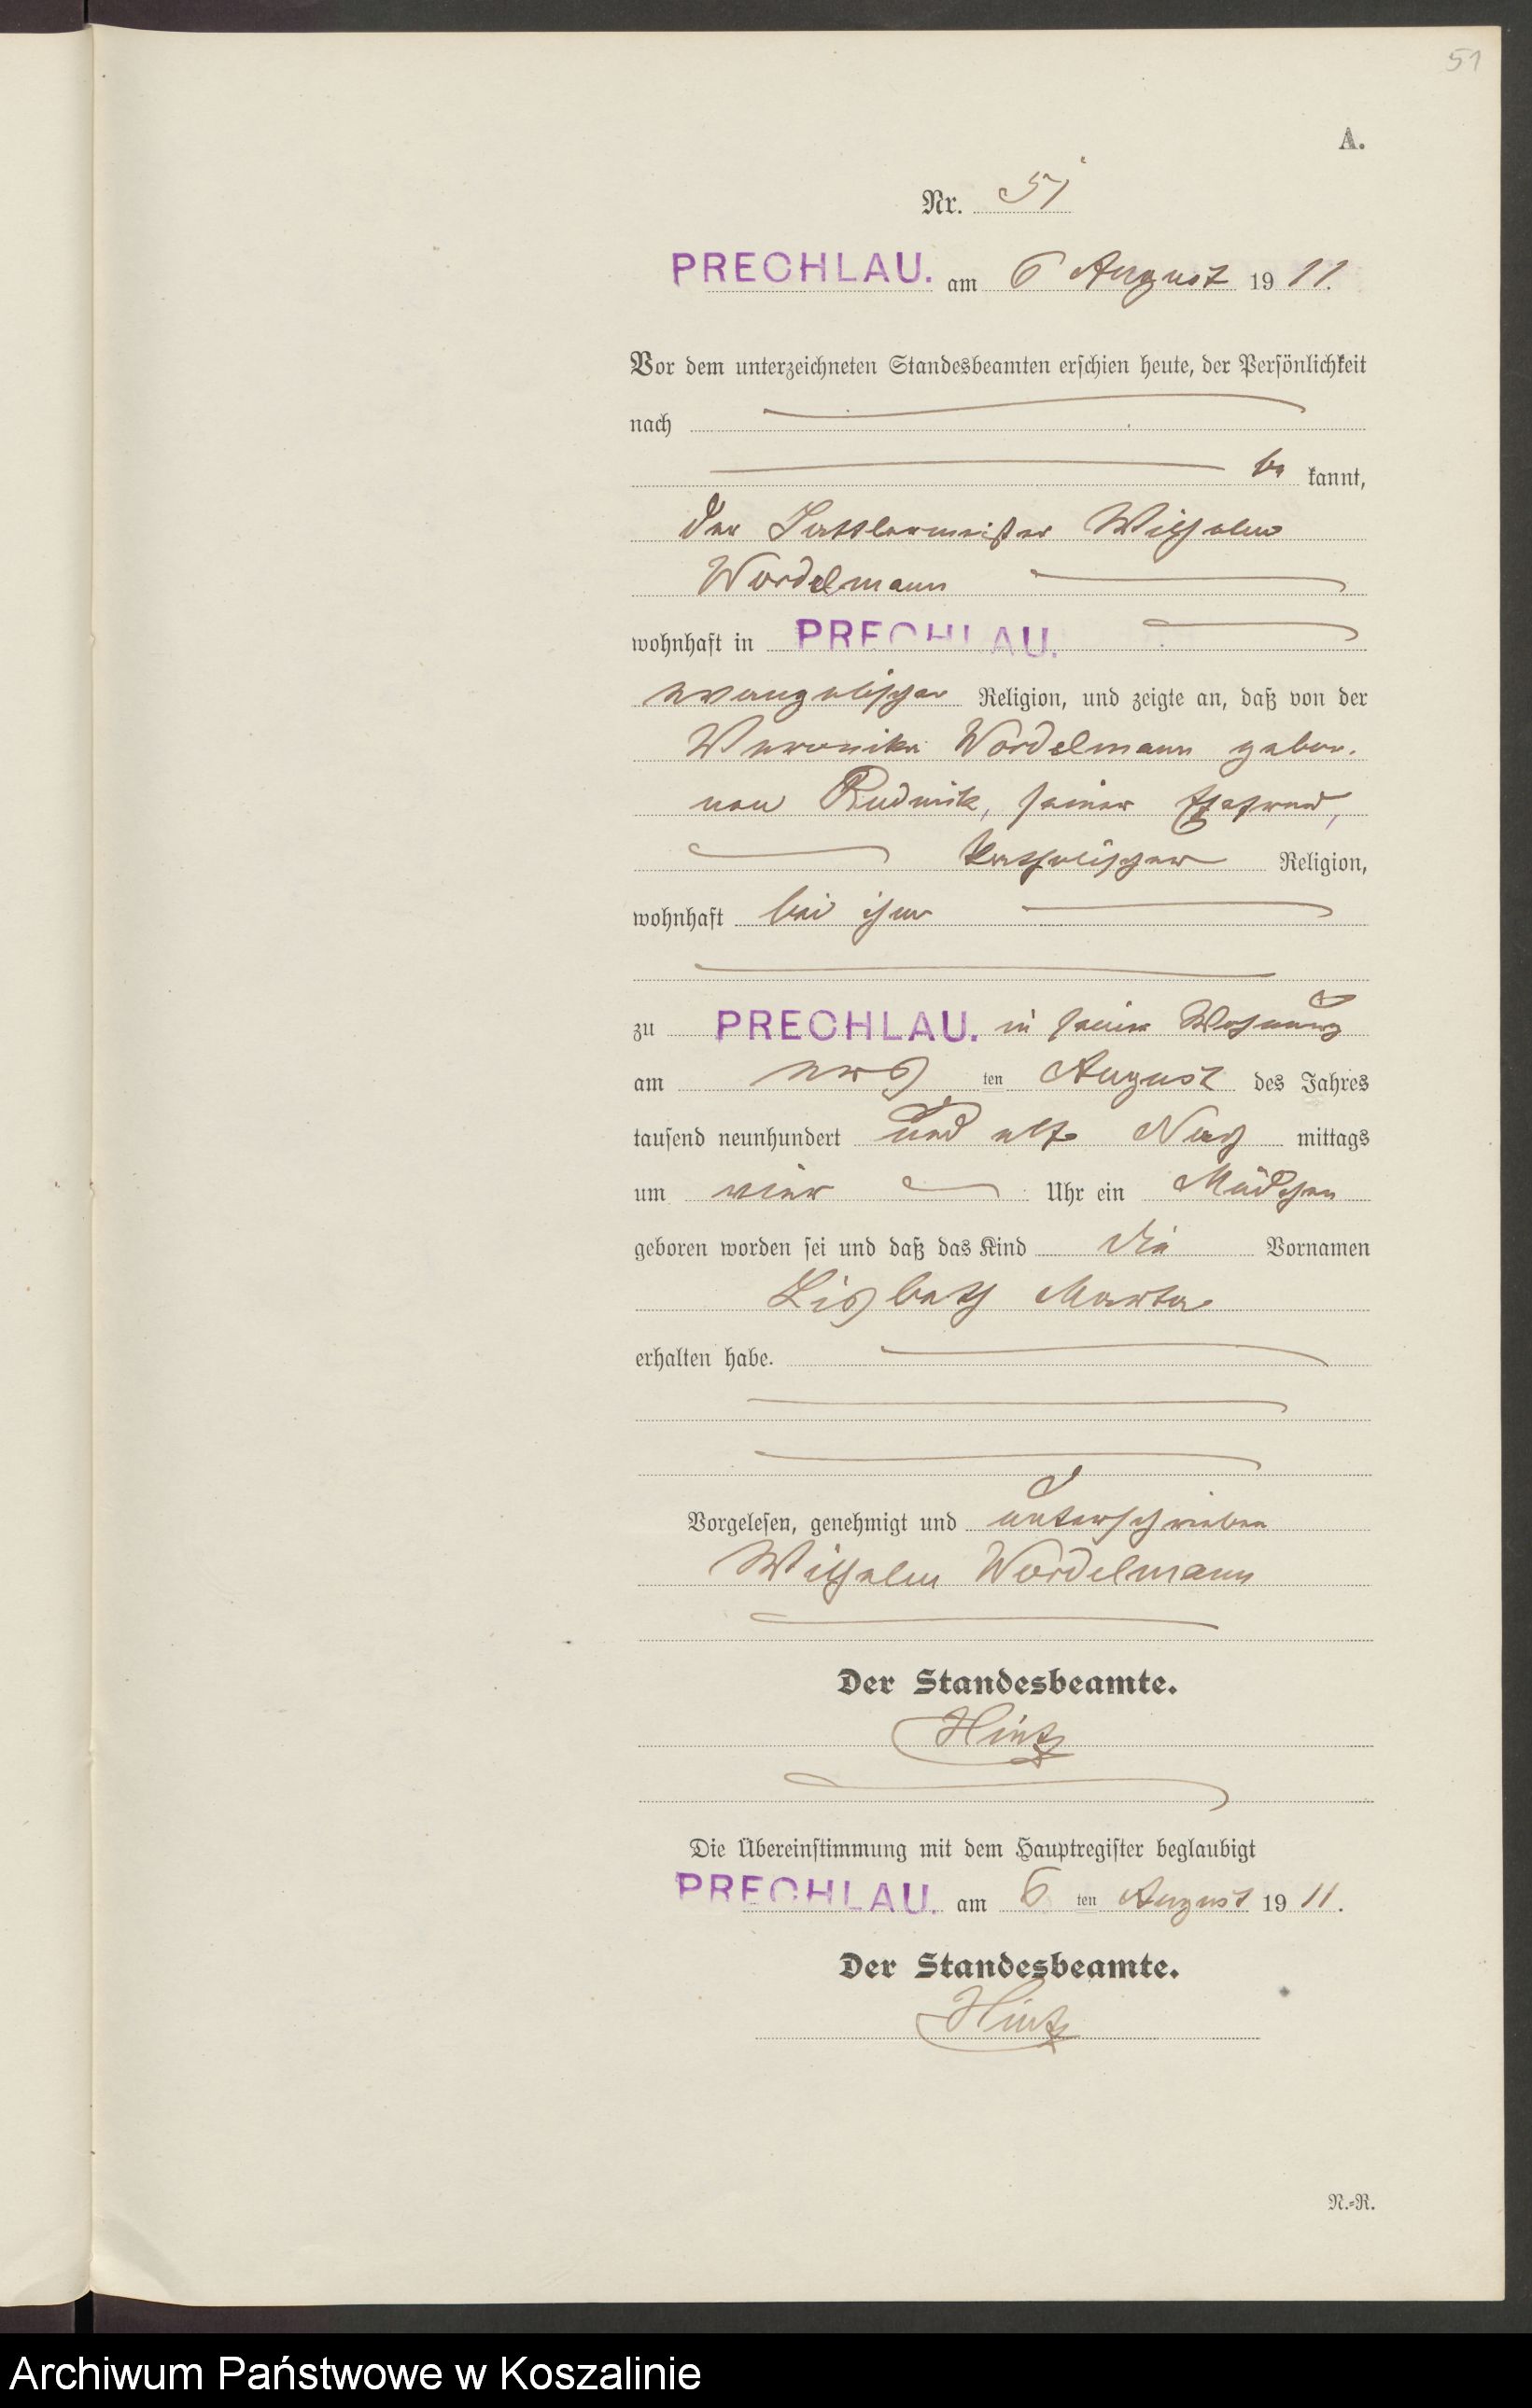 51
A.
Nr. 51
PRECHLAU. am 6 August 1911.
Vor dem unterzeichneten Standesbeamten erschien heute, der Persönlichkeit
nach
be kannt,
der Sattlermeister Wilhelm
Wordelmann
wohnhaft in PRECHLAU.
evangelischer Religion, und zeigte an, daß von der
Weronika Wordelmann gebor.
nen Rudnik, seiner Ehefrau,
katholischer Religion,
wohnhaft bei ihm
zu PRECHLAU. in seiner Wohnung
am ersten August des Jahres
tausend neunhundert und elf Nach mittags
um vier Uhr ein Mädchen
geboren worden sei und daß das Kind die Vornamen
Lisbeth Marta
erhalten habe.
Vorgelesen, genehmigt und unterschrieben
Wilhelm Wordelmann
Der Standesbeamte.
Hintz
Die Übereinstimmung mit dem Hauptregister beglaubigt
PRECHLAU. am 6 ten August 1911.
Der Standesbeamte.
Hintz
N.-R.
Archiwum Państwowe w Koszalinie